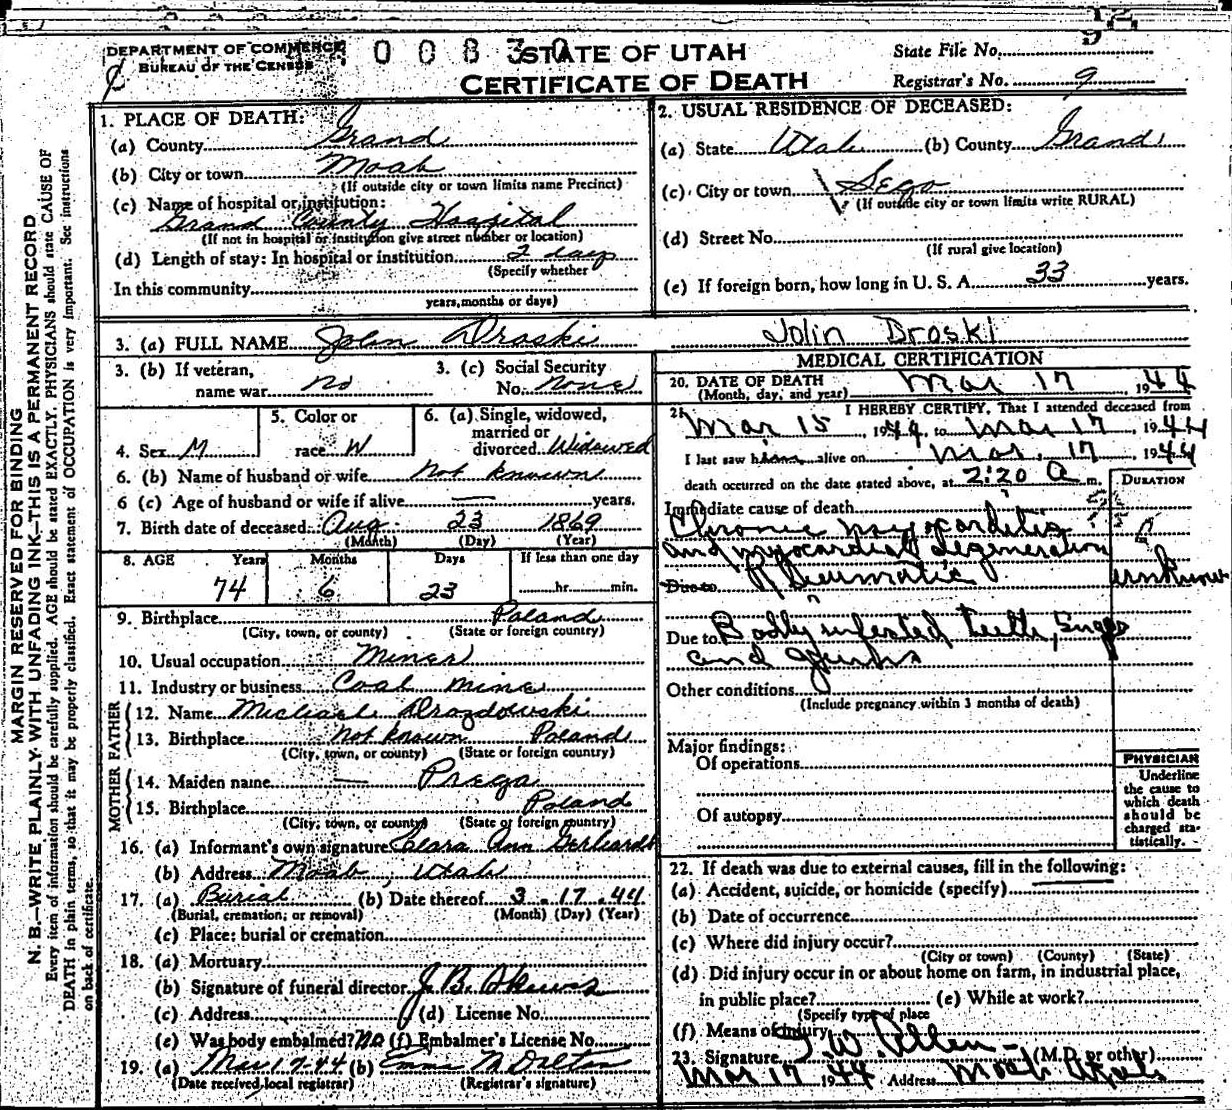 DEPARTMENT OF COMMERCE
BUREAU OF THE CENSUS
0 0 8 3 0
STATE OF UTAH
CERTIFICATE OF DEATH
State File No.
Registrar's No. 9
MARGIN RESERVED FOR BINDING
N. B.—WRITE PLAINLY, WITH UNFADING INK—THIS IS A PERMANENT RECORD
Every item of information should be carefully supplied. AGE should be stated EXACTLY. PHYSICIANS should state CAUSE OF
DEATH in plain terms, so that it may be properly classified. Exact statement of OCCUPATION is very important. See instructions
on back of certificate.
1. PLACE OF DEATH:
(a) County Grand
(b) City or town Moab
(If outside city or town limits name Precinct)
(c) Name of hospital or institution:
Grand County Hospital
(If not in hospital or institution give street number or location)
(d) Length of stay: In hospital or institution 2 days
(Specify whether
In this community
years, months or days)
2. USUAL RESIDENCE OF DECEASED:
(a) State Utah (b) County Grand
(c) City or town Sego
(If outside city or town limits write RURAL)
(d) Street No.
(If rural give location)
(e) If foreign born, how long in U. S. A. 33 years.
3. (a) FULL NAME John Droski John Droski
3. (b) If veteran, name war No
3. (c) Social Security No. None
4. Sex M
5. Color or race W
6. (a) Single, widowed, married or divorced Widowed
6. (b) Name of husband or wife Not known
6 (c) Age of husband or wife if alive — years.
7. Birth date of deceased: Aug. 23 1869
(Month) (Day) (Year)
8. AGE Years Months Days If less than one day
74 6 23 hr. min.
9. Birthplace Poland
(City, town, or county) (State or foreign country)
10. Usual occupation Miner
11. Industry or business Coal mine
FATHER
12. Name Michael Drozdowski
13. Birthplace Not known Poland
(City, town, or county) (State or foreign country)
MOTHER
14. Maiden name — Prega
15. Birthplace Poland
(City, town, or county) (State or foreign country)
16. (a) Informant's own signature Clara Ann Gerhardt
(b) Address Moab, Utah
17. (a) Burial (b) Date thereof 3-17-44
(Burial, cremation, or removal) (Month) (Day) (Year)
(c) Place: burial or cremation
18. (a) Mortuary
(b) Signature of funeral director J. B.
(c) Address (d) License No.
(e) Was body embalmed? No (f) Embalmer's License No.
19. (a) Mar 17-44 (b) Emma N Dalton
(Date received local registrar) (Registrar's signature)
MEDICAL CERTIFICATION
20. DATE OF DEATH Mar 17 1944
(Month, day, and year)
21. I HEREBY CERTIFY, That I attended deceased from
Mar 15, 1944, to Mar 17, 1944
I last saw him alive on Mar. 17 1944
death occurred on the date stated above, at 2:20 A m.
DURATION
Immediate cause of death
Chronic myocarditis
and myocardial degeneration
Due to Rheumatic unknown
Due to Badly infected teeth,
and gums
Other conditions
(Include pregnancy within 3 months of death)
Major findings:
Of operations
Of autopsy
PHYSICIAN
Underline
the cause to
which death
should be
charged sta-
tistically.
22. If death was due to external causes, fill in the following:
(a) Accident, suicide, or homicide (specify)
(b) Date of occurrence
(c) Where did injury occur?
(City or town) (County) (State)
(d) Did injury occur in or about home on farm, in industrial place,
in public place? (e) While at work?
(Specify type of place
(f) Means of Injury
23. Signature I. W. Allen (M.D. or other)
Mar 17 1944 Address Moab Utah